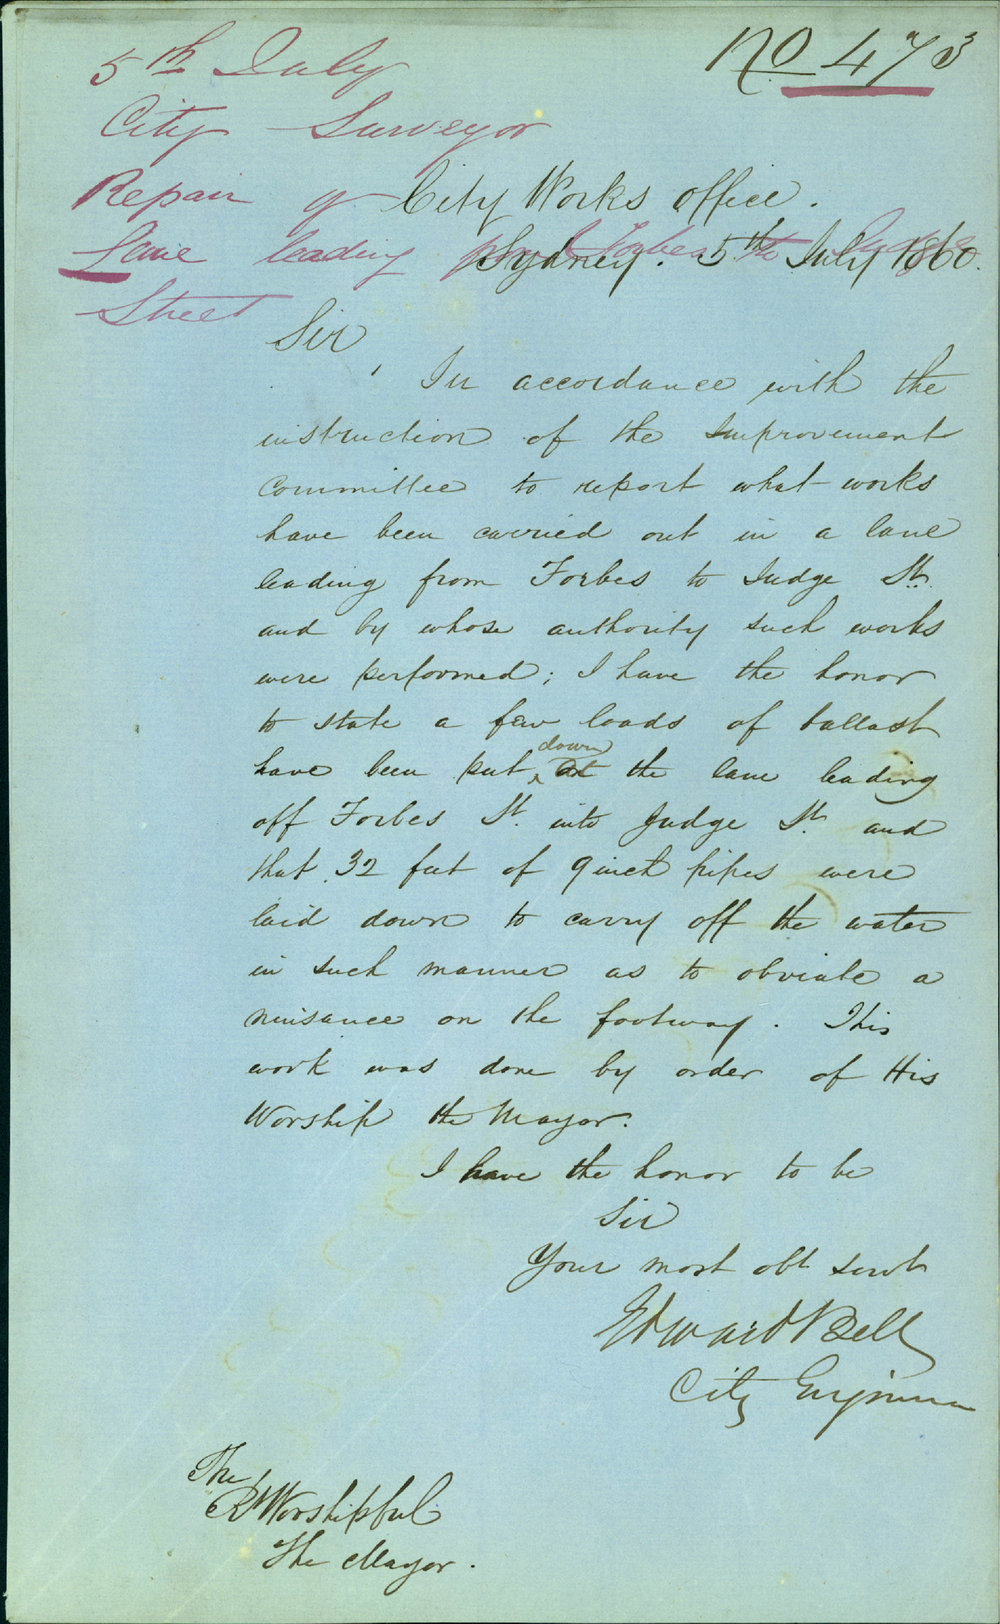 No 473
5th July
City Surveyor
Repair of
Lane leading from Forbes to Judge
Street
City Works Office.
Sydney. 5th July 1860.
Sir,
In accordance with the
instruction of the Improvement
Committee to report what works
have been carried out in a lane
leading from Forbes to Judge St.
and by whose authority such works
were performed; I have the honor
to state a few loads of ballast
have been put down at the lane leading
off Forbes St. into Judge St. and
that 32 feet of 9 inch pipes were
laid down to carry off the water
in such manner as to obviate a
nuisance on the footway. This
work was done by order of His
Worship the Mayor.
I have the honor to be
Sir
Your most obt servt
Edward Bell
City Engineer
The
Rt Worshipful
The Mayor.